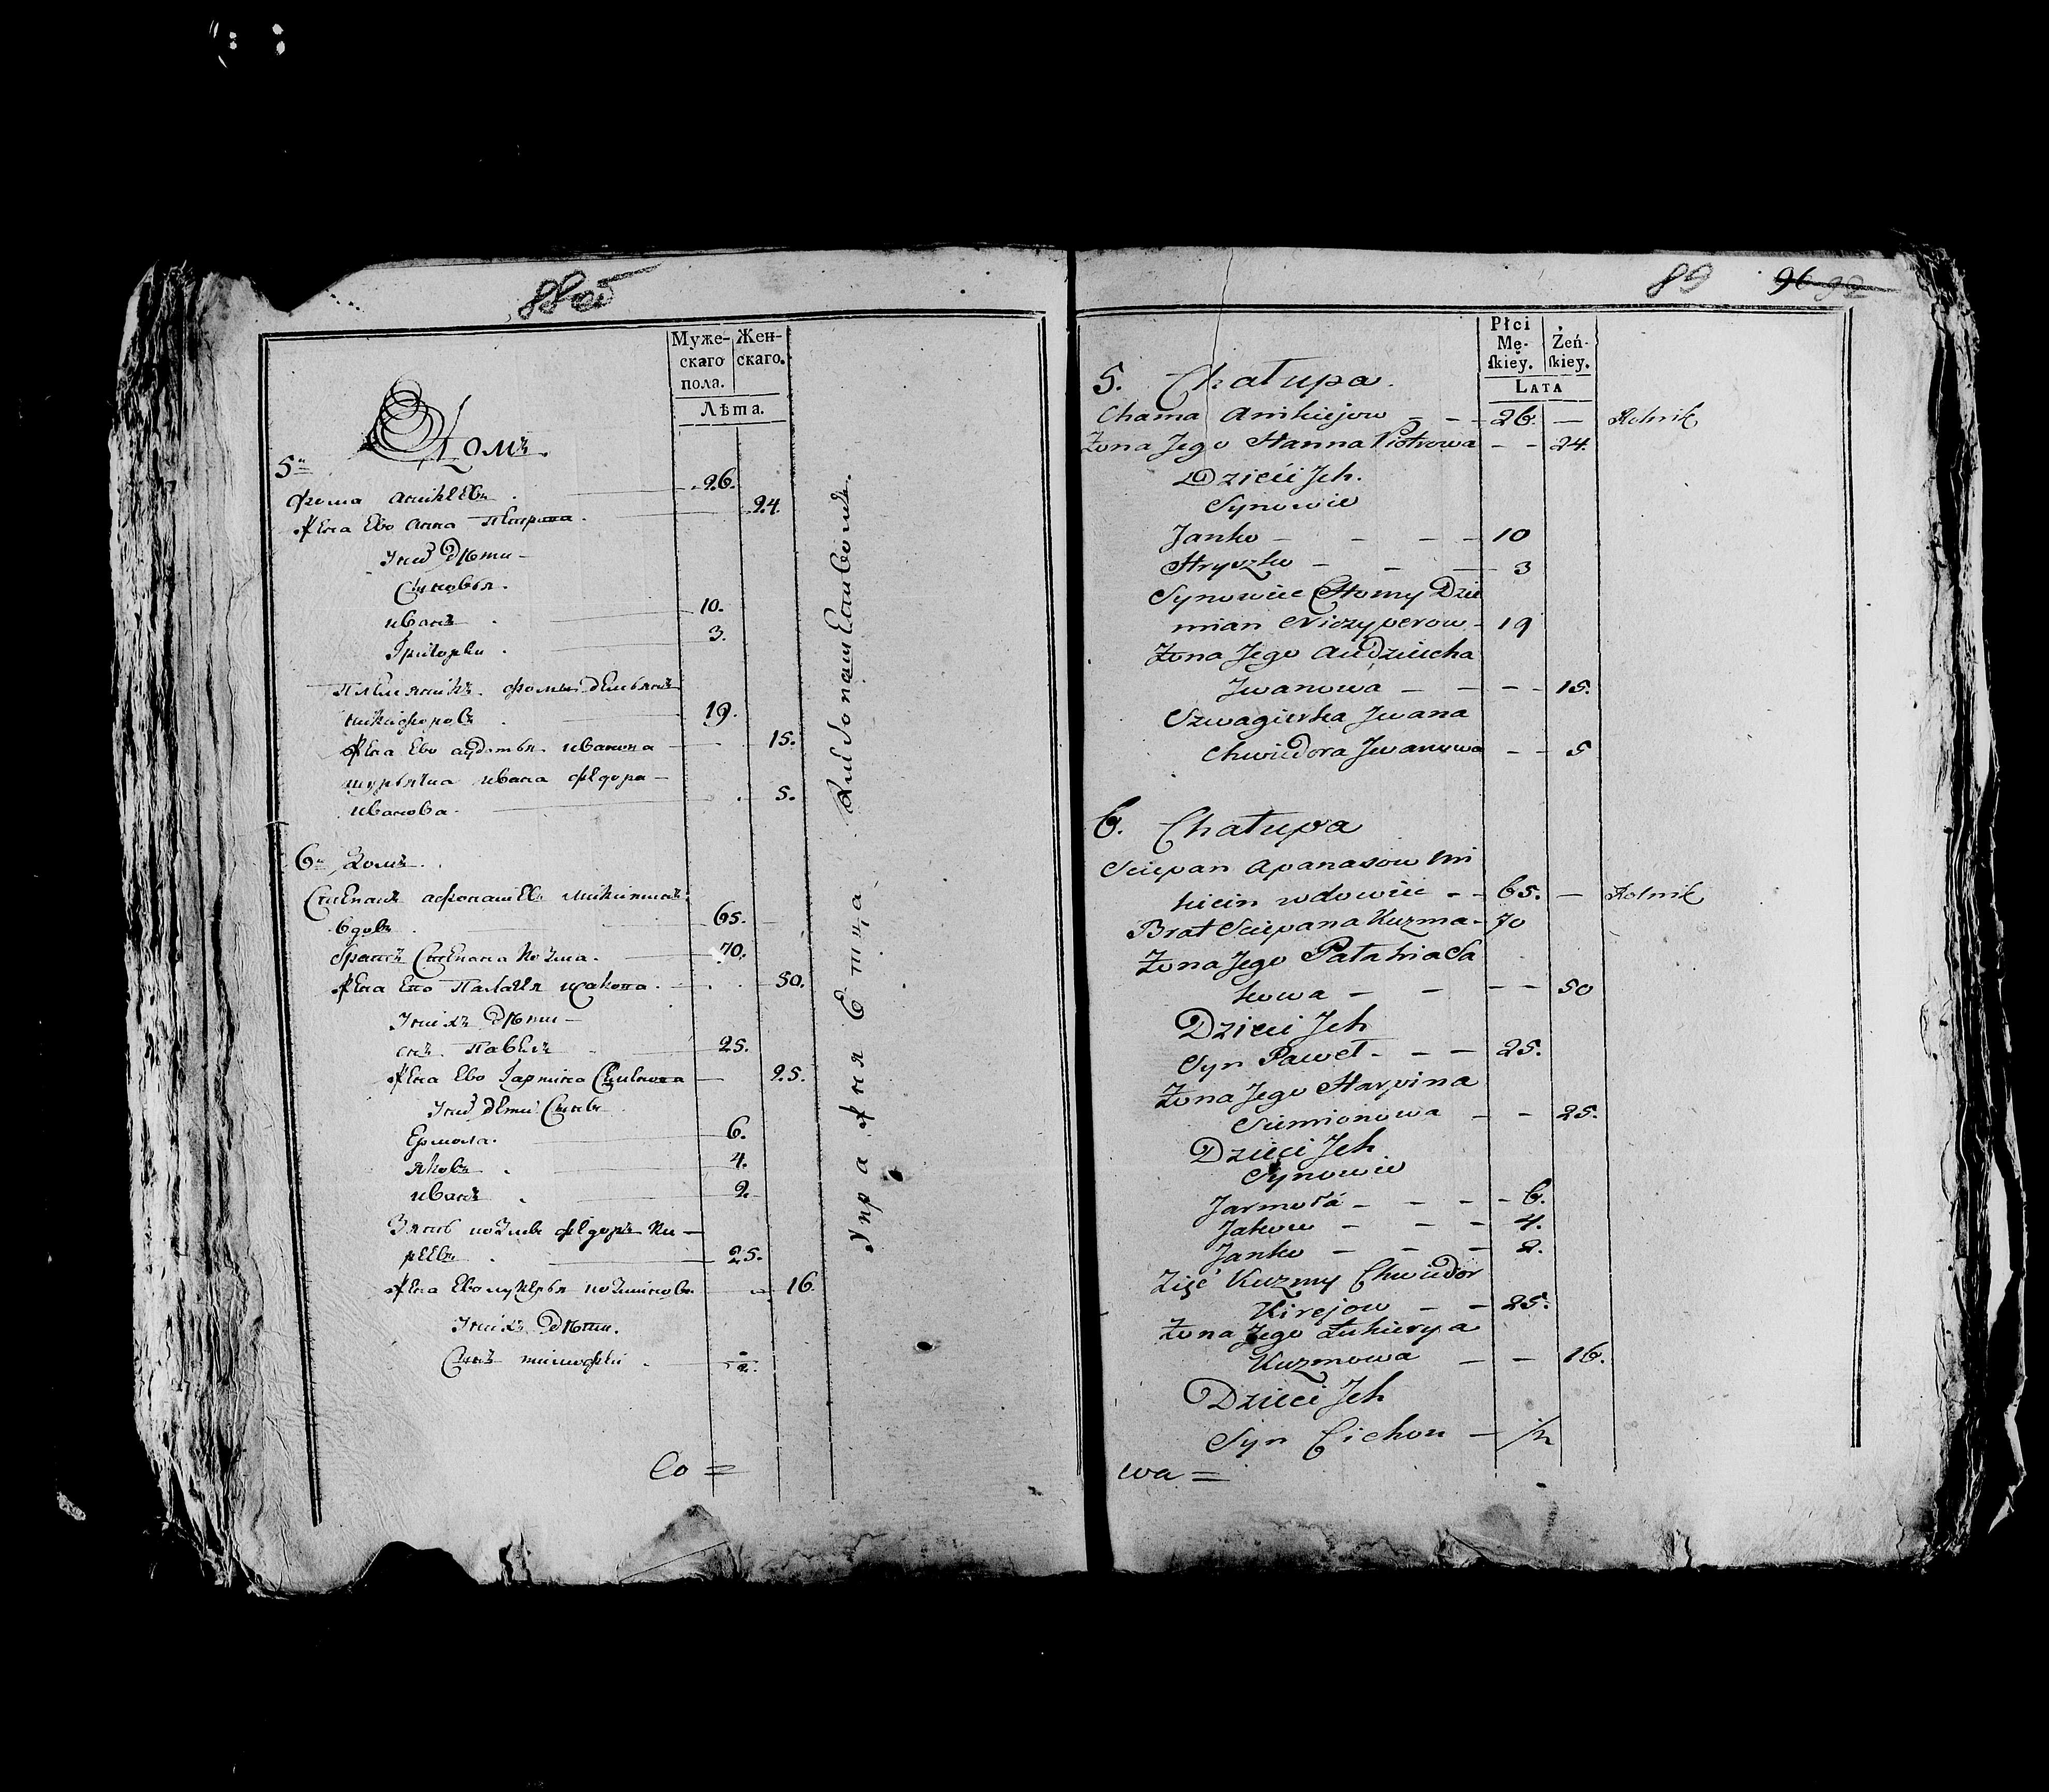 88об
Муже-
скаго
пола.
Жен-
скаго.
Лѣта.
5й Домъ.
Фома Аникеевъ 26.
Жена Ево Анна Петрова. 24.
Ихъ дѣти
Сыновья.
Иванъ 10.
Григорьи 3.
Племяникъ Фомы Демьянъ
Никифоровъ 19.
Жена Ево Авдотья Иванова 15.
Шурьячка Ивана Федора
Иванова. 5.
6й Домъ.
Степанъ Афонасьевъ Микитинъ
вдовъ 65.
Братъ Степана Козма. 70.
Жена Ево Палагея 50.
Ихъ дѣти
сынъ Павелъ 25.
Жена Ево Карпина 25.
Ихъ дети Сыновья
Ермола. 6.
Яковъ 4.
Иванъ 2.
Зять Козмы Федоръ Ки-
реевъ 25.
Жена Ево Лукерья Козминова 16.
Ихъ дѣти.
Сынъ Тимофей
Со =
Упражня Етца
89 96 92
Płci
Mę-
skiey.
Żeń-
skiey.
LATA
5. Chałupa.
Chama Anikiejow - - 26. — Rolnik
Żona Jego Hanna Piotrowa - - 24.
Dzieci Jch.
Synowie
Janko - - - - 10
Hryszko - - - 3
Synowiec Chomy Dzie
mian Niczyperow - 19
Żona Jego Audziucha
Jwanowa - - - - 15.
Szwagierka Jwana
Chwiedora Jwanowa - - 5
6. Chałupa
Sciepan Apanasow Mi
kicin wdowiec - - 65. — Rolnik
Brat Sciepana Kuzma - 70
Żona Jego Pałahia Sa
kowa - - - - 50
Dzieci Jch
Syn Paweł - - - 25.
Żona Jego Harpina
Siemionowa - - 25.
Dzieci Jch
Synowie
Jarmoła - - - - 6.
Jakow - - - 4.
Janko - - - 2.
Zięć Kuzmy Chwiedor
Kirejow - - 25.
Żona Jego Łukierya
Kuzmowa - - 16.
Dzieci Jch
Syn Cichon - ½
wa =